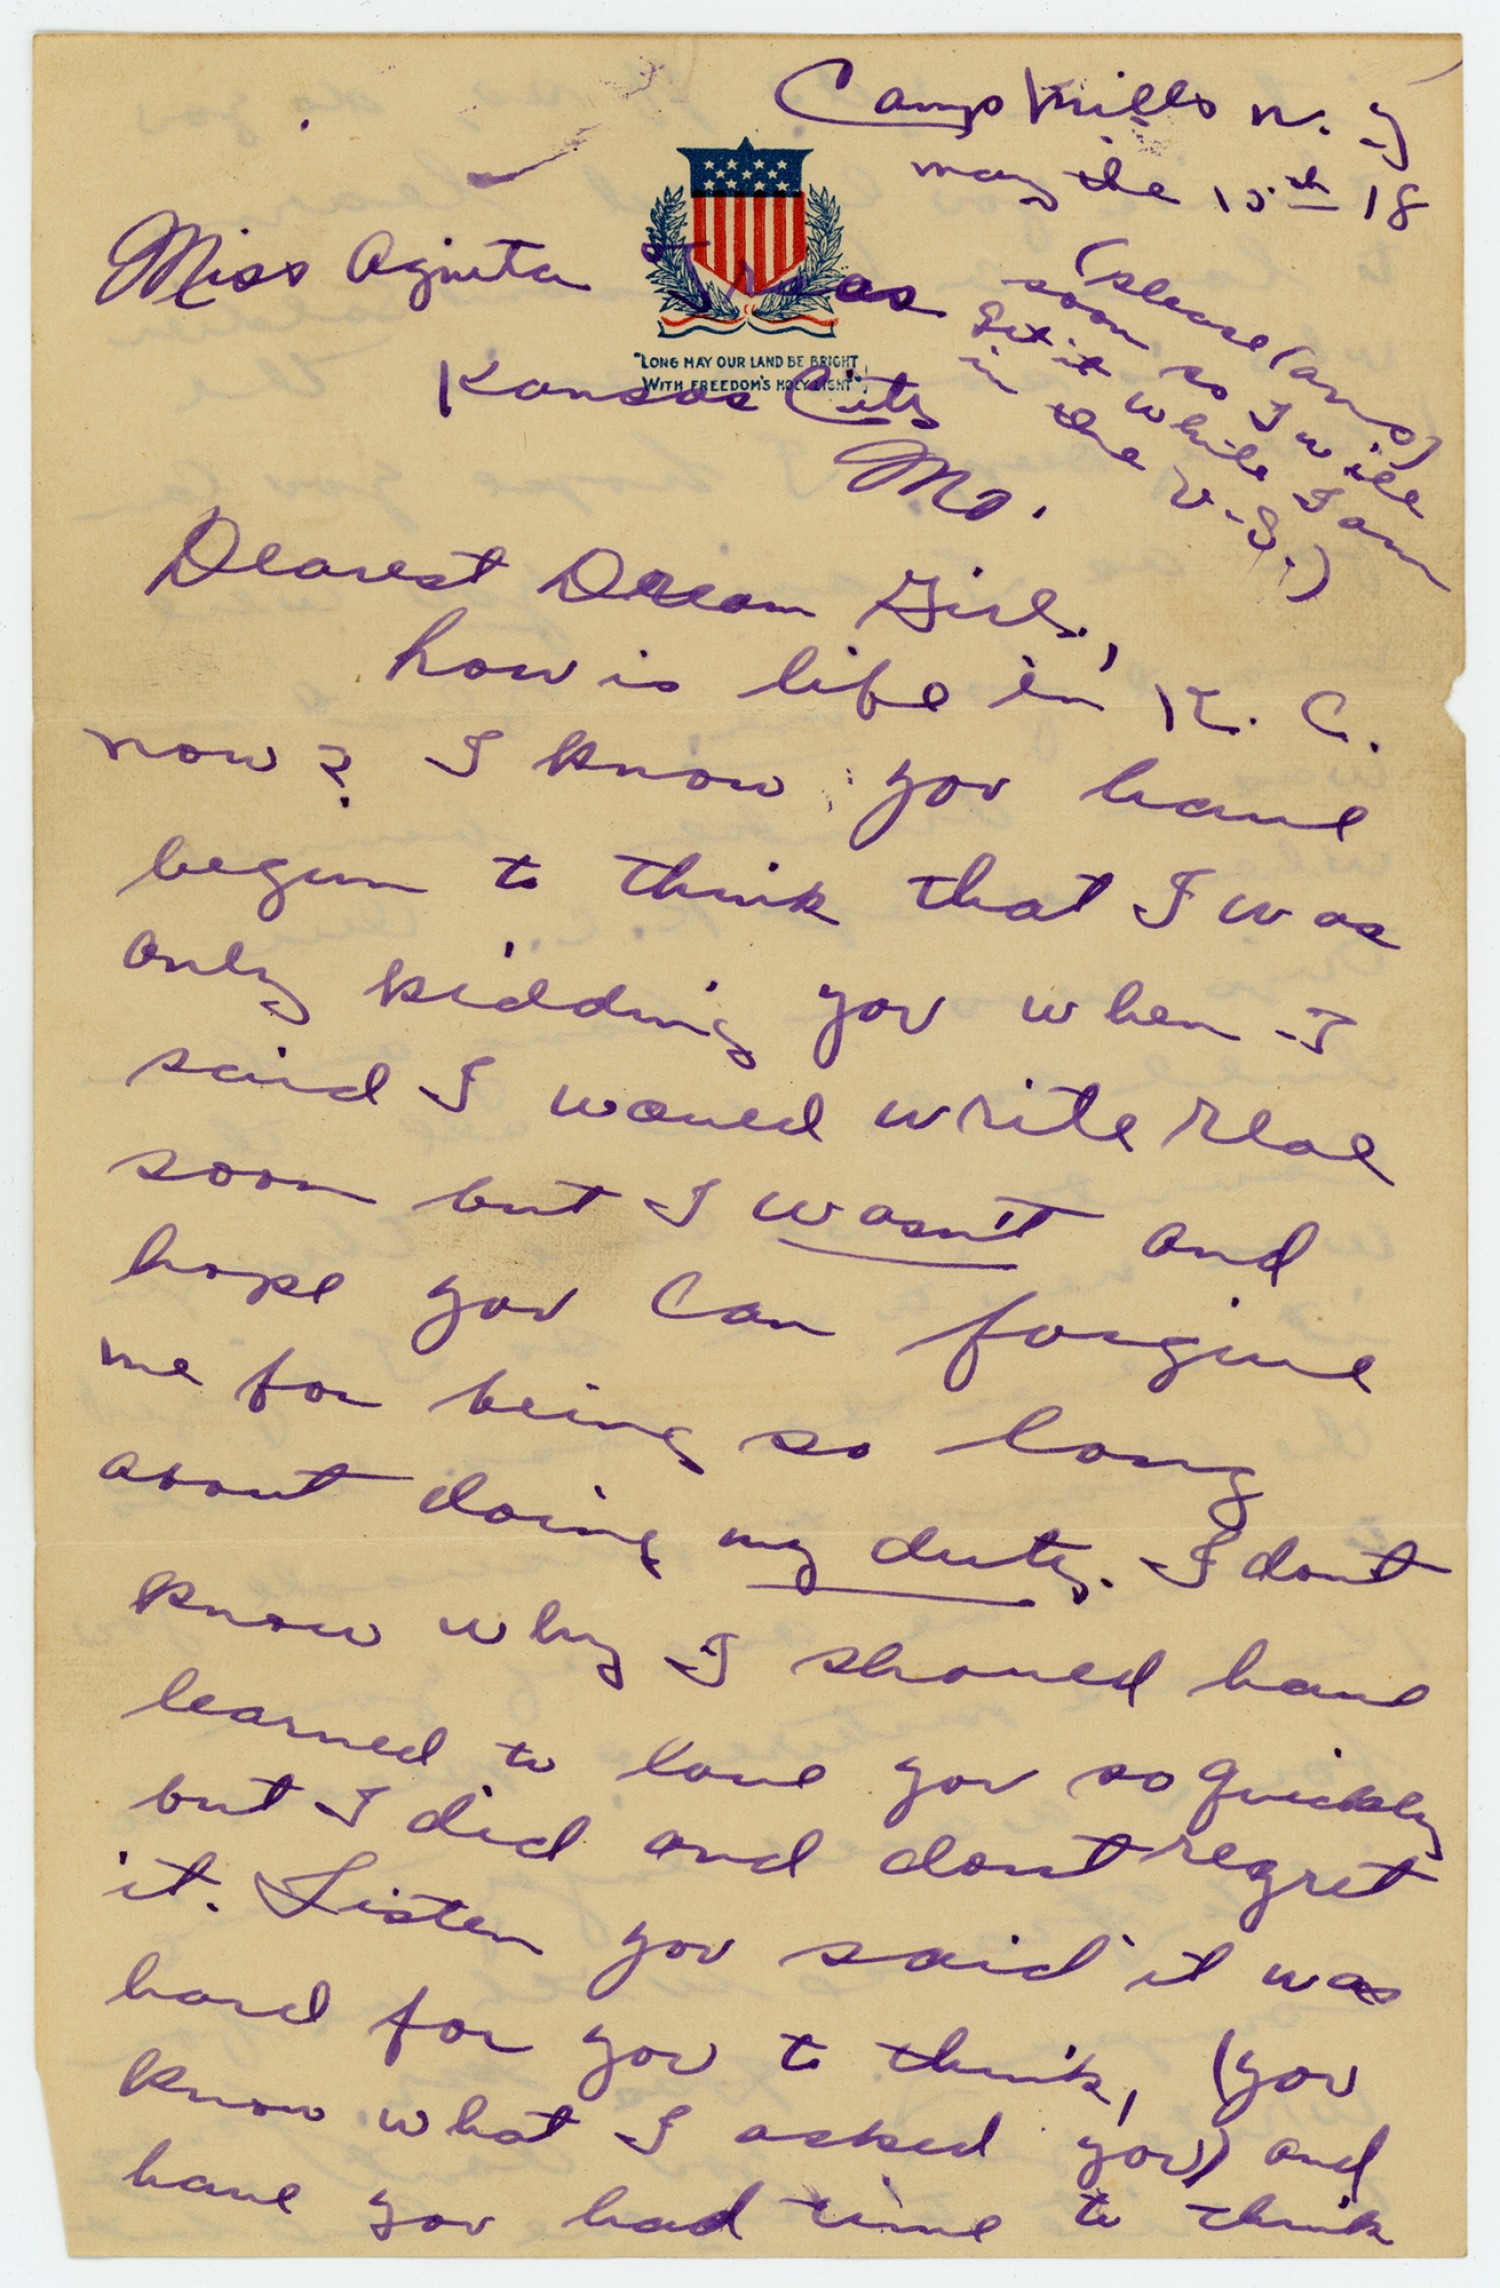 Camp Mills N. Y
May the 15th 18
Miss Agneta
(Please (ans)
soon so I will
get it while I am
in the U.S.)
"LONG MAY OUR LAND BE BRIGHT
WITH FREEDOM'S HOLY LIGHT"
Kansas City
Mo.
Dearest Dream Girl,
how is life in K. C.
now? I know you have
begun to think that I was
only kidding you when I
said I would write real
soon but I wasn't and
hope you can forgive
me for being so long
about doing my duty. I dont
know why I should have
learned to love you so quickly
but I did and dont regret
it. Listen you said it was
hard for you to think, (you
know what I asked you) and
have you had time to think